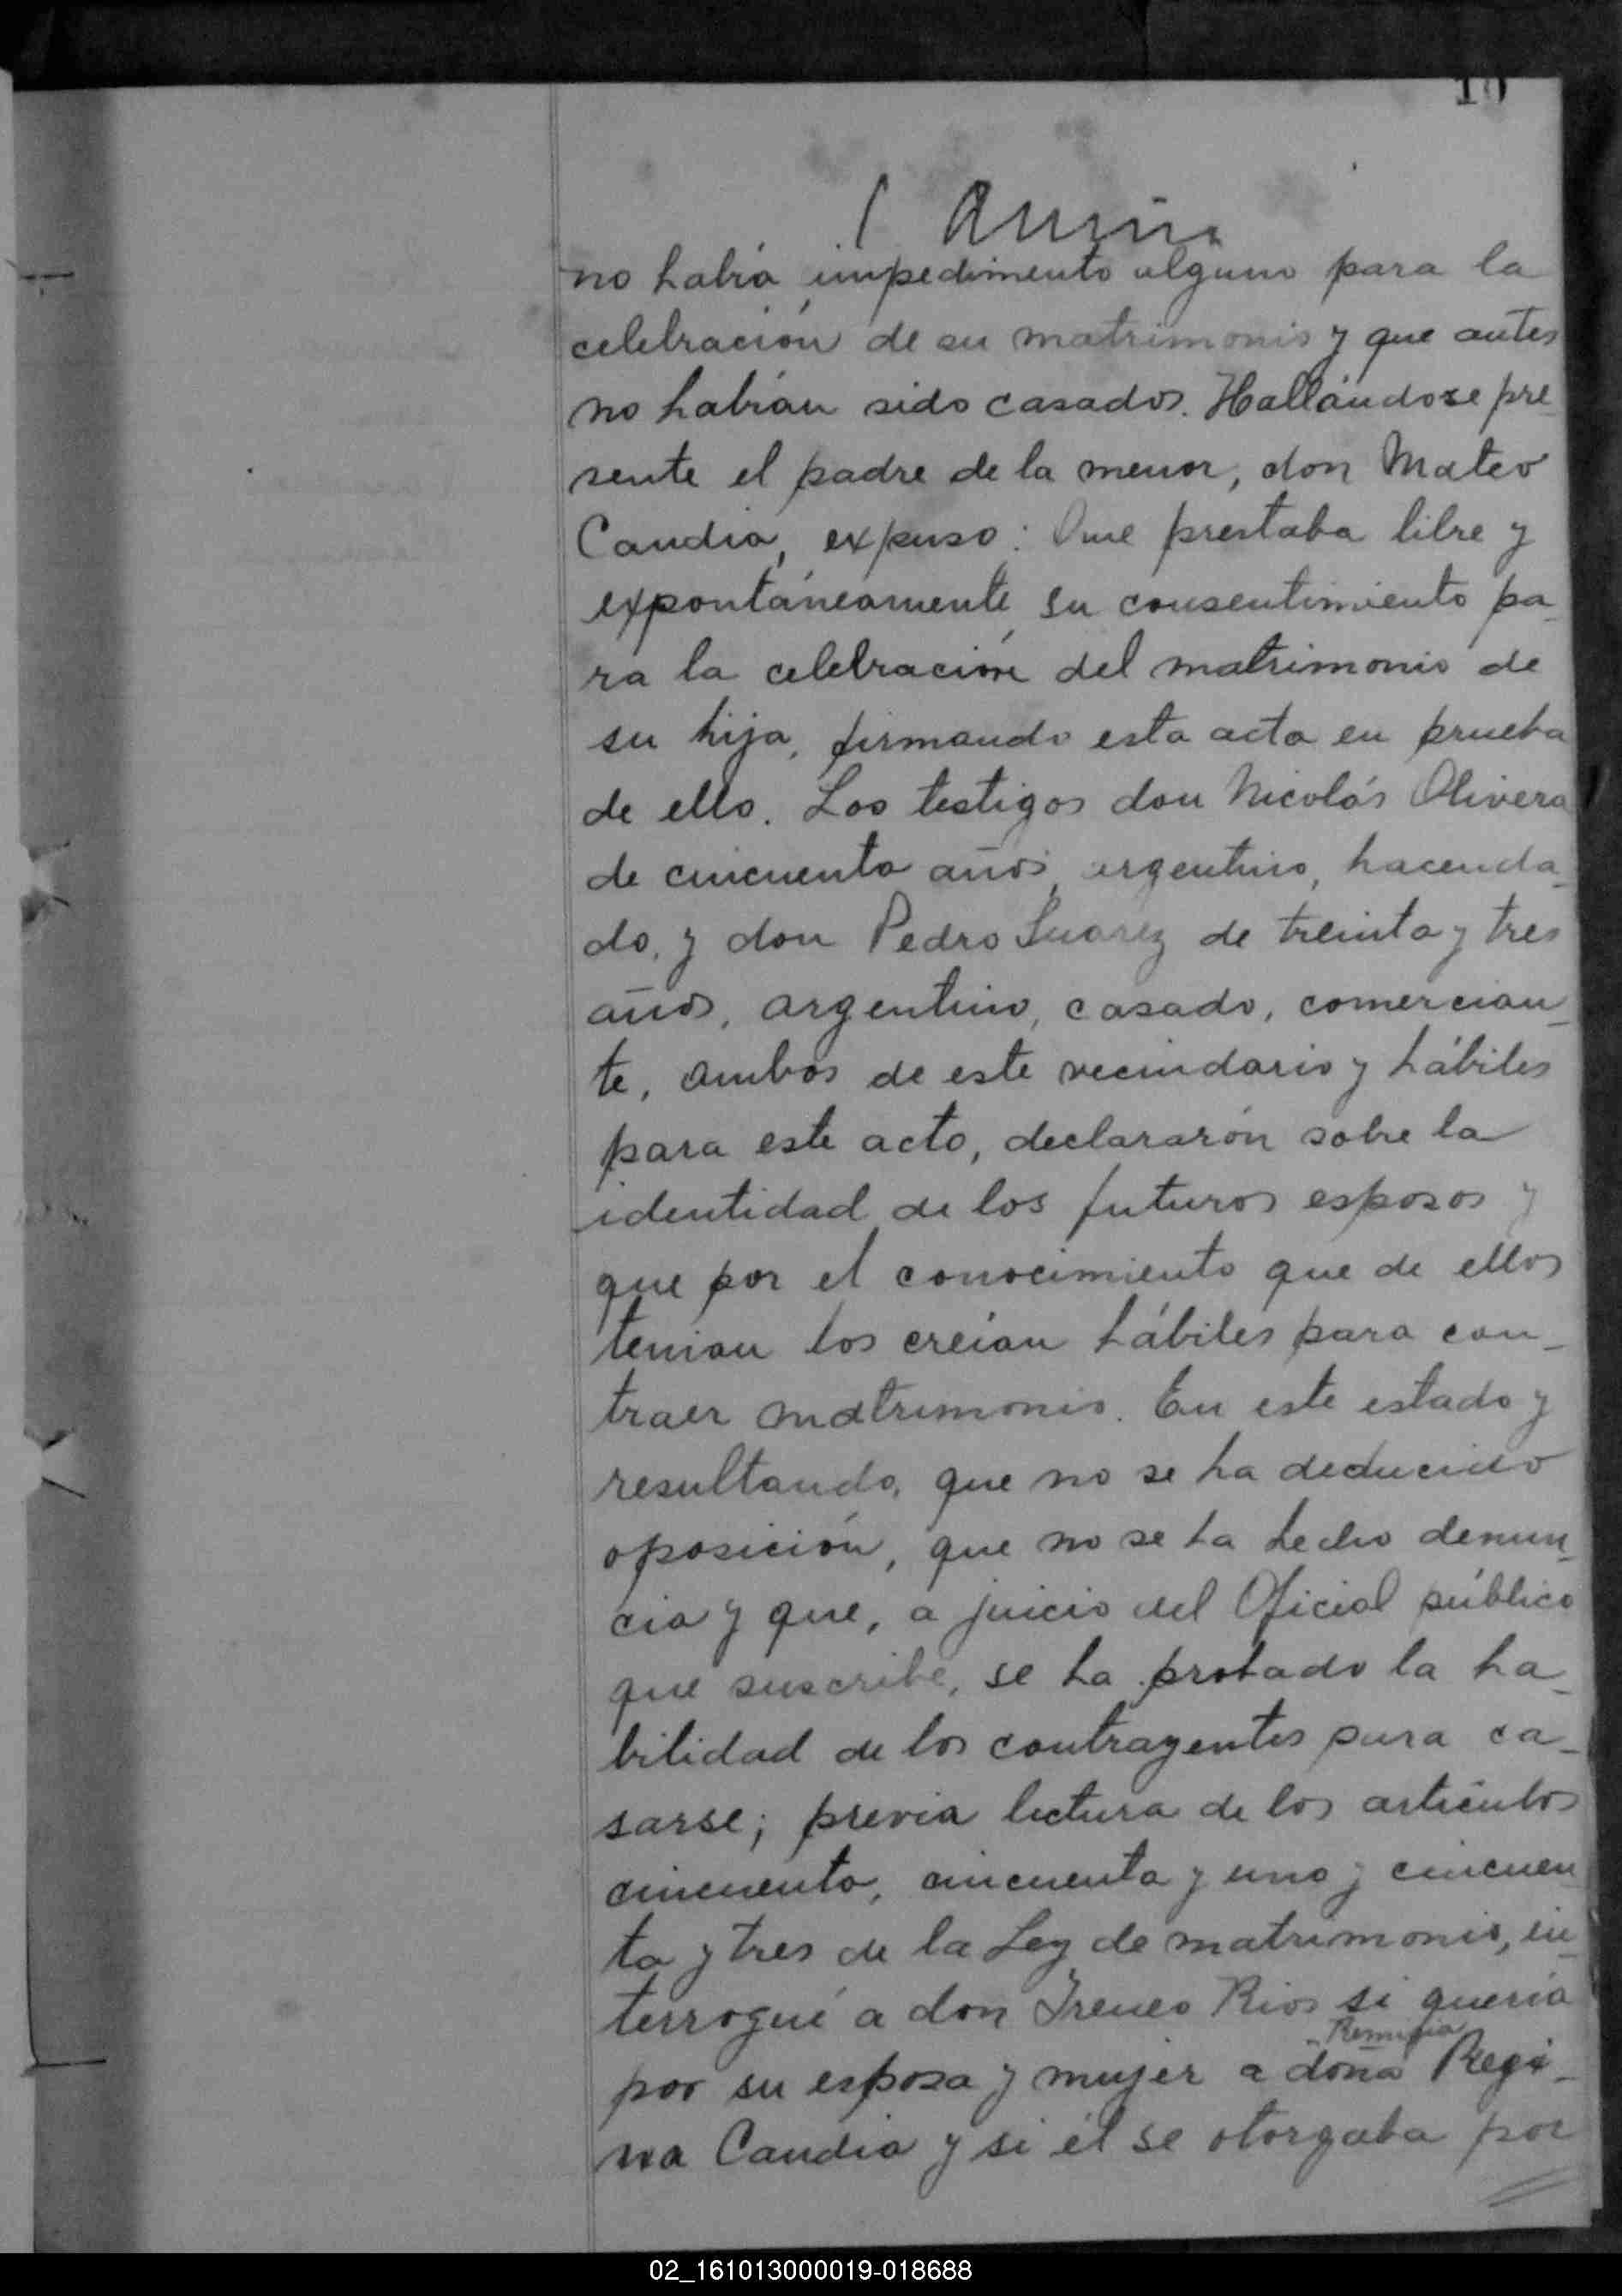 10
no había impedimento alguno para la
celebración de su matrimonio y que antes
no habían sido casados. Hallándose pre-
sente el padre de la menor, don Mateo
Candia, expuso: Que prestaba libre y
expontáneamente su consentimiento pa-
ra la celebración del matrimonio de
su hija, firmando esta acta en prueba
de ello. Los testigos don Nicolás Olivera
de cincuenta años, argentino, hacenda-
do, y don Pedro Suarez de treinta y tres
años, argentino, casado, comercian-
te, ambos de este vecindario y hábiles
para este acto, declararón sobre la
identidad de los futuros esposos y
que por el conocimiento que de ellos
tenian los creían hábiles para con-
traer matrimonio. En este estado y
resultando, que no se ha deducido
oposición, que no se ha hecho denun-
cia y que, a juicio del Oficial público
que suscribe, se ha probado la ha-
bilidad de los contrayentes para ca-
sarse; previa lectura de los artículos
cincuenta, cincuenta y uno y cincuen
ta y tres de la Ley de matrimonio, in-
terrogué a don Ireneo Rios si quería
Remigia
por su esposa y mujer a doña Regi-
na Candia y si él se otorgaba por
02_161013000019-018688